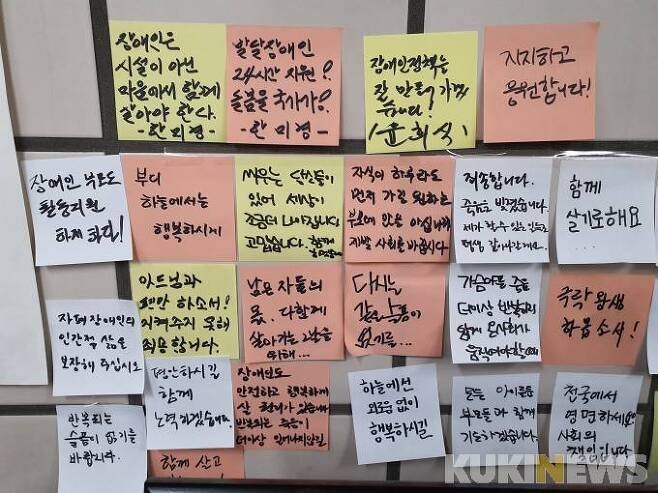 장애인은
시설이 아닌
마을에서 함께
살아야 한다.
-한미경-
발달장애인
24시간 지원?
슬픔을 국가가?
-한미경-
장애인정책는
잘 만들어
(윤희식)
지지하고
응원합니다!
장애인 부모도
활동지원
하게 하라!
부디
하늘에서는
행복하시게
싸우는 당신들이
있어 세상이
조금더 나아집니다
고맙습니다. 함께
자식이 하루라도
먼저 가길 원하는
부모에 맘을 아십니까
제발 사회를 바꿉시다
죄송합니다.
죽음을 빚졌습니다.
제가 할 수 있는
평생 갚아갈게요.
함께
살기로해요
...
아드님과
평안 하소서!
지켜주지 못해
죄송합니다.
남은 자들의
몫, 다함께
살아가는 그날을
위해...
다시는
같은 슬픔이
없기를...
가슴아픈 죽음
더이상 반복되지
않게 온사회가
움직여야할때
극락왕생
하옵소서!
자폐장애인의
인간적 삶을
보장해 주십시오
편안하시길
함께
노력하겠습니다.
장애인도
안전하고 행복하게
살 권리가 있습니다
반복되는 죽음이
더이상 일어나지않길
하늘에선
외로움 없이
행복하시길
모든 아이들을
부모들과 함께
기억하겠습니다.
천국에서
영면하세요.
사회의
책임입니다
반복되는
슬픔이 없기를
바랍니다.
함께 살고
KUKINEWS